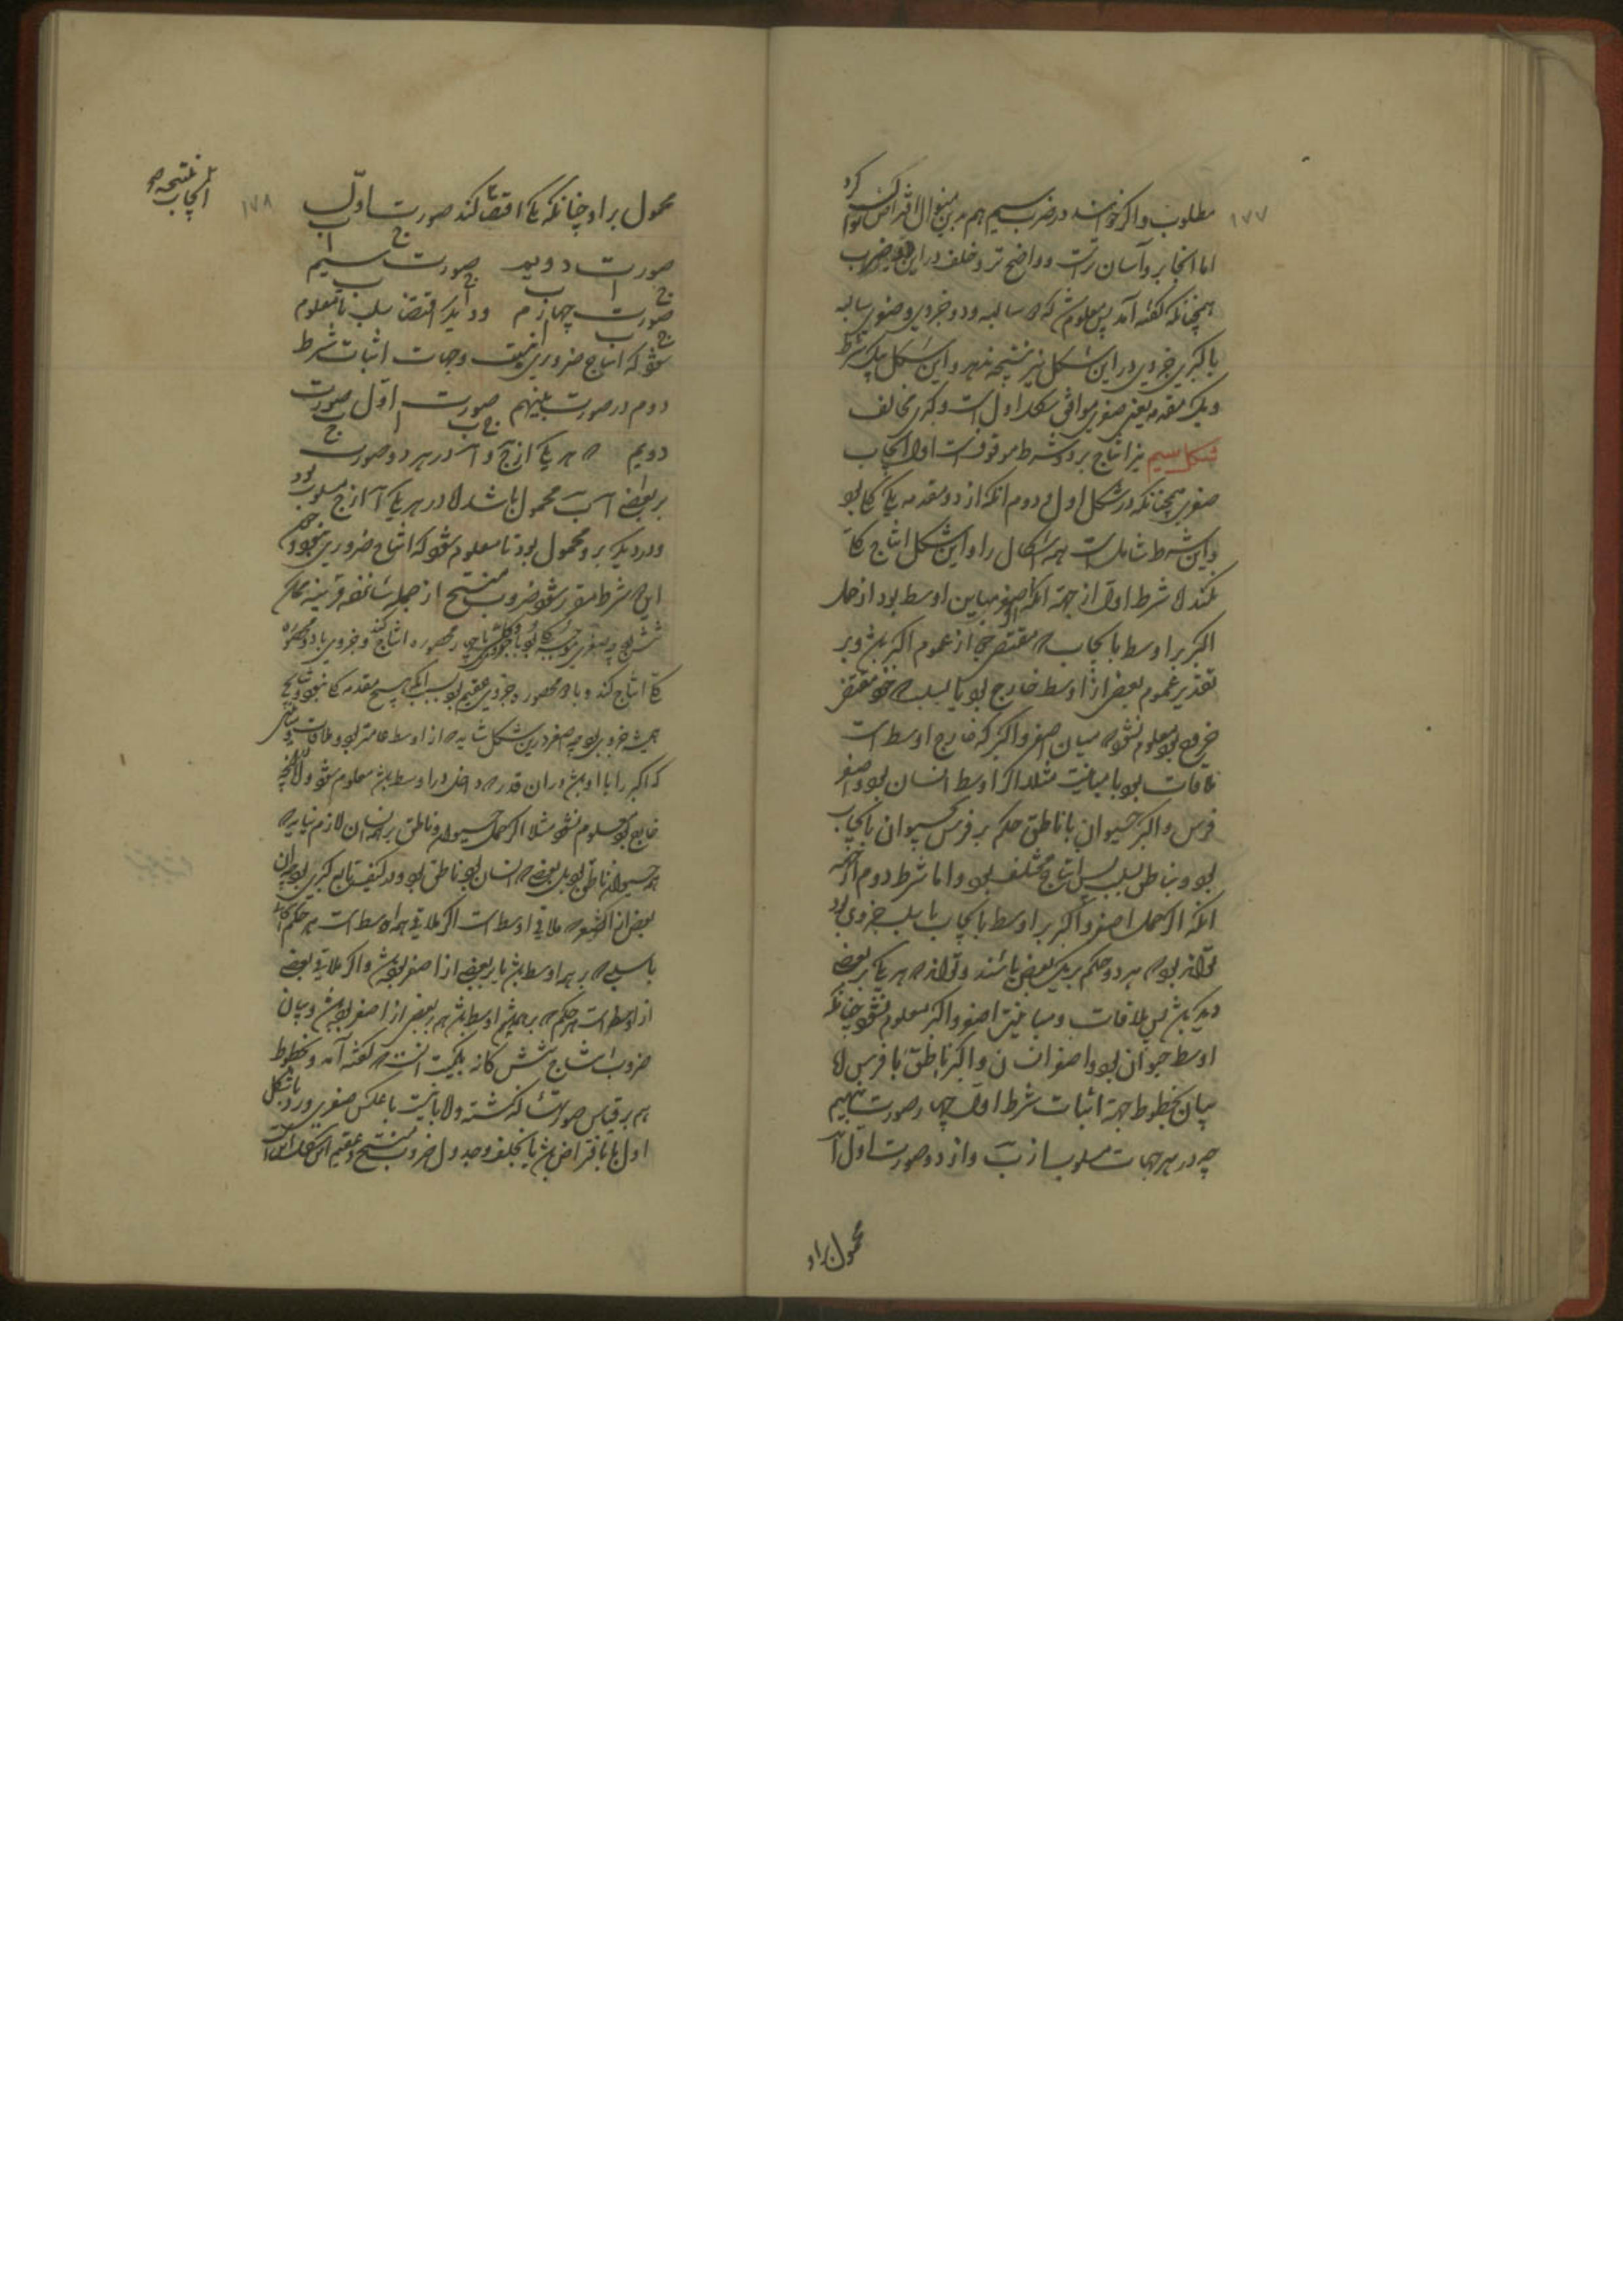 ۱۷۷
مطلوب و اگر خواهند در ضرب سیم هم برین منوال افتراض توان کرد
اما آنجا بر و آسان ترست و واضح تر و خلف در این ضرب
همچنانکه گفته آمد پس معلوم شد که دو سالبه و دو جزوی و صغری سالبه
با کبری جزوی در این شکل نیز نتیجه ندهد و این شکل بیک شرط
و یک مقدمه یعنی صغری موافق شکل اول است و بکبری مخالف
شکل سیم نیز انتاج بر دو شرط موقوفست اول ایجاب
صغری همچنانکه در شکل اول و دوم آنکه از دو مقدمه یکی کلی بود
و این شرط شامل است همه اشکال را و این شکل انتاج کلی
نکند اما شرط اول از جهة آنکه اصغر مباین اوسط بود از حمل
اکبر بر اوسط بایجاب که مقتضی جواز عموم اکبر باشد و بر
تقدیر عموم بعضی از اوسط خارج بود یا بسلب که خود مقتضی
خروج بود معلوم نشود که میان اصغر و اکبر که خارج اوسط است
ملاقات بود یا مباینت مثلا اگر اوسط انسان بود و اصغر
فرس و اکبر حیوان یا ناطق حکم بر فرس بحیوان بایجاب
بود و بناطق بسلب پس انتاج مختلف بود و اما شرط دوم از جهة
آنکه اگر حمل اصغر و اکبر بر اوسط بایجاب یا سلب جزوی بود
تواند بود که هر دو حکم بر یک بعض باشند و تواند که هر یکی بر بعضی
دیگر باشد پس ملاقات و مباینت اصغر و اکبر معلوم نشود چنانکه
اوسط حیوان بود و اصغر انسان و اکبر ناطق یا فرس اما
بیان بخطوط جهة اثبات شرط اول چهار صورت بنهیم
چه در هر چهار ج مسلوب از ب و از دو صورت اول آ
محمول بر او
۱۷۸
محمول بر او چنانکه یکی اقتضا کند صورت اول
صورت دویم صورت سیم
صورت چهارم و دیگر اقتضا سلب تا معلوم
شود که انتاج ضروری نیست و جهت اثبات شرط
دوم دو صورت بنهیم صورت اول صورت
دویم که هر یکی از ج و آ در هر دو صورت
بر بعضی از ب محمول باشد اما در هر یکی آ از ج مسلوب بود
و در دیگر برو محمول بود تا معلوم شود که انتاج ضروری نبود و چون
این دو شرط مقرر شود ضروب منتج از جمله شانزده قرینه ممکن
شش بود چه صغری موجبه کلی بود با هر چهار محصوره انتاج کند و جزوی با دو محصوره
کلی انتاج کند و با دو محصوره جزوی عقیم بود بسبب آنکه هیچ مقدمه کلی نبود و نتایج
همیشه جزوی بود چه اصغر درین شکل شاید که از اوسط عامتر بود و ملاقات و مباینتی
که اکبر را با او باشد در آن قدر که داخل در اوسط باشد معلوم شود و در آنچه
خارج بود معلوم نشود مثلا اگر حمل حیوان و ناطق بر همه انسان لازم نیاید که
همه حیوان ناطق بود بل بعضی که انسان بود ناطق بود و در کیفیت تابع کبری بود چه آن
بعضی از اصغر که ملاقی اوسط است اگر ملاقی همه اوسط است هر حکم ایجابی
یا سلبی که بر همه اوسط باشد یا بر بعضی از اصغر بوده باشد و اگر ملاقی بعضی
از اوسط است هر حکم که بر همه اوسط باشد هم بر بعضی از اصغر بوده باشد و بیان
ضروب انتاج شش گانه بلمیت آنست که گفته آمد و بخطوط
هم بر قیاس صورتهای گذشته و اما بانیت یا بعکس صغری و رد با شکل
اول یا بافتراض باشد یا بخلف و جدول ضروب منتج و عقیم این شکل اینست
نتیجه
ایجاب